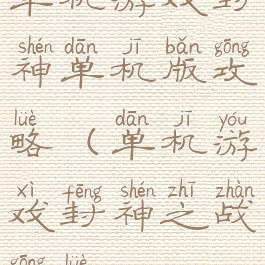 单机游戏封
shén dān jī bǎn gōng
神单机版攻
lüè dān jī yóu
略（单机游
xì fēng shén zhī zhàn
戏封神之战
gōng lüè